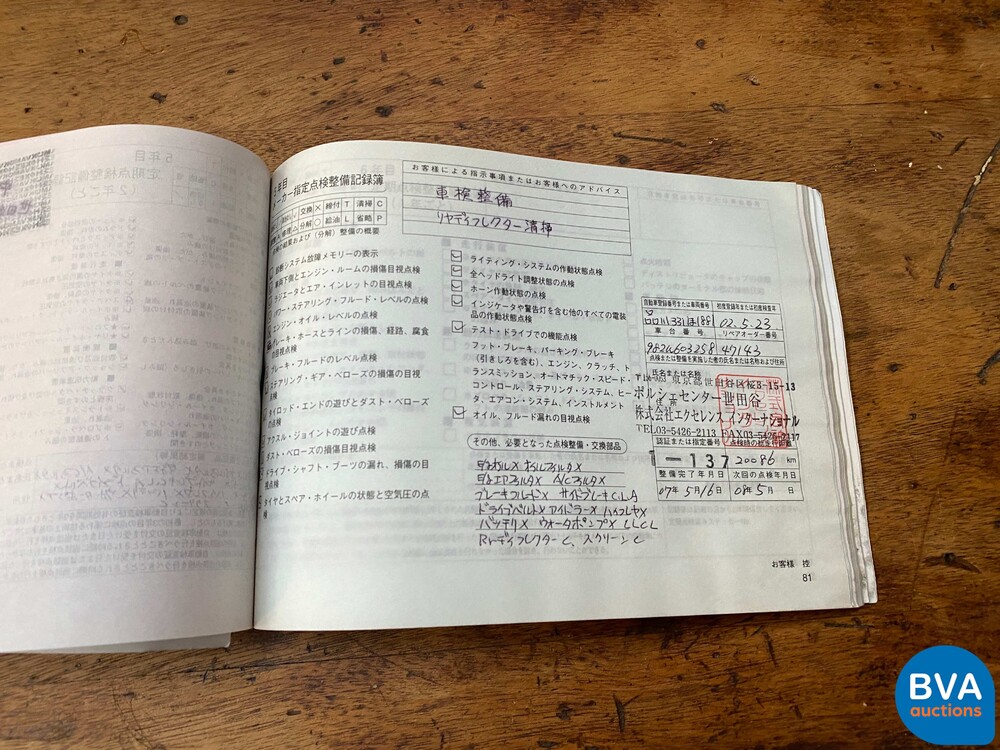 年目
カー指定点検整備記録簿
交換 × 締付 T 清掃 C
修理 △ 分解 ○ 給油 L 省略 P
の結果および（分解）整備の概要
お客様による指示事項またはお客様へのアドバイス
車検整備
リヤディフレクター清掃
診断システム故障メモリーの表示
車両下側とエンジン・ルームの損傷目視点検
ラジエータとエア・インレットの目視点検
パワー・ステアリング・フルード・レベルの点検
エンジン・オイル・レベルの点検
ブレーキ・ホースとラインの損傷、経路、腐食
の目視点検
ブレーキ・フルードのレベル点検
ステアリング・ギア・ベローズの損傷の目視
点検
タイロッド・エンドの遊びとダスト・ベローズ
の点検
アクスル・ジョイントの遊び点検
ダスト・ベローズの損傷目視点検
ドライブ・シャフト・ブーツの漏れ、損傷の目
視点検
タイヤとスペア・ホイールの状態と空気圧の点
検
ライティング・システムの作動状態点検
全ヘッドライト調整状態の点検
ホーン作動状態の点検
インジケータや警告灯を含む他のすべての電装
品の作動状態点検
テスト・ドライブでの機能点検
フット・ブレーキ、パーキング・ブレーキ
（引きしろを含む）、エンジン、クラッチ、ト
ランスミッション、オートマチック・スピード・
コントロール、ステアリング・システム、ヒー
タ、エアコン・システム、インストルメント
オイル、フルード漏れの目視点検
その他、必要となった点検整備・交換部品
オイルX オイルフィルタX
エアフィルタX A/CフィルタX
ブレーキフルードX サイドブレーキC.L.A
ドライブベルトX アイドラーX ハイフレヤX
バッテリX ウォータポンプX LLCL
Rrディフレクター C、スクリーン C
自動車登録番号または車両番号 初度登録年または初度検査年
331 188 02.5.23
車台番号 リペアオーダー番号
982U603258 47143
点検または整備を実施した者の氏名または名称および住所
氏名または名称
東京都世田谷区桜3-15-13
住所
ポルシェセンター世田谷
株式会社エクセレンス インターナショナル
TEL03-5426-2113 FAX03-5426-2117
認証または指定番号 点検時の総走行距離
1-137 20086 km
整備完了年月日 次回の点検年月日
07年5月16日 08年5月 日
お客様 控
81
5年目
定期点検整備記録
BVA
auctions